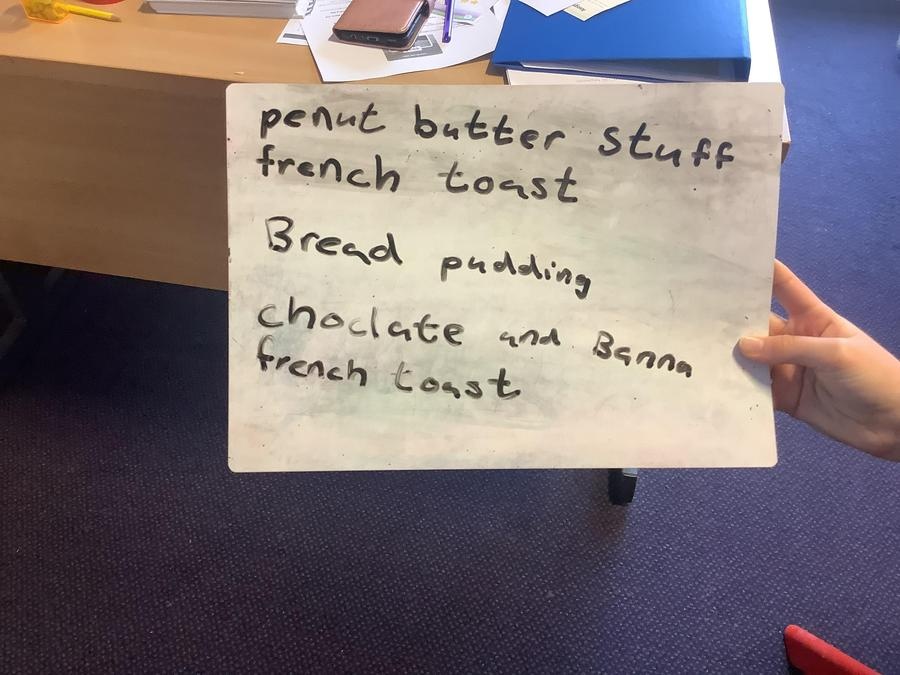 penut butter stuff
french toast
Bread pudding
choclate and Banna
french toast